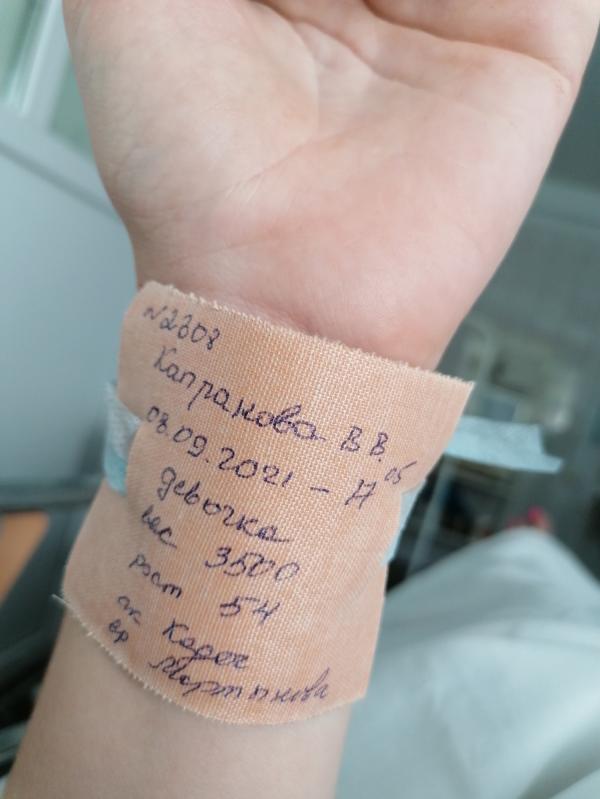 №2308
Капранова В.В.
08.09.2021 - 17 05
девочка
вес 3500
рост 54
ак Кадач
вр Мартынова